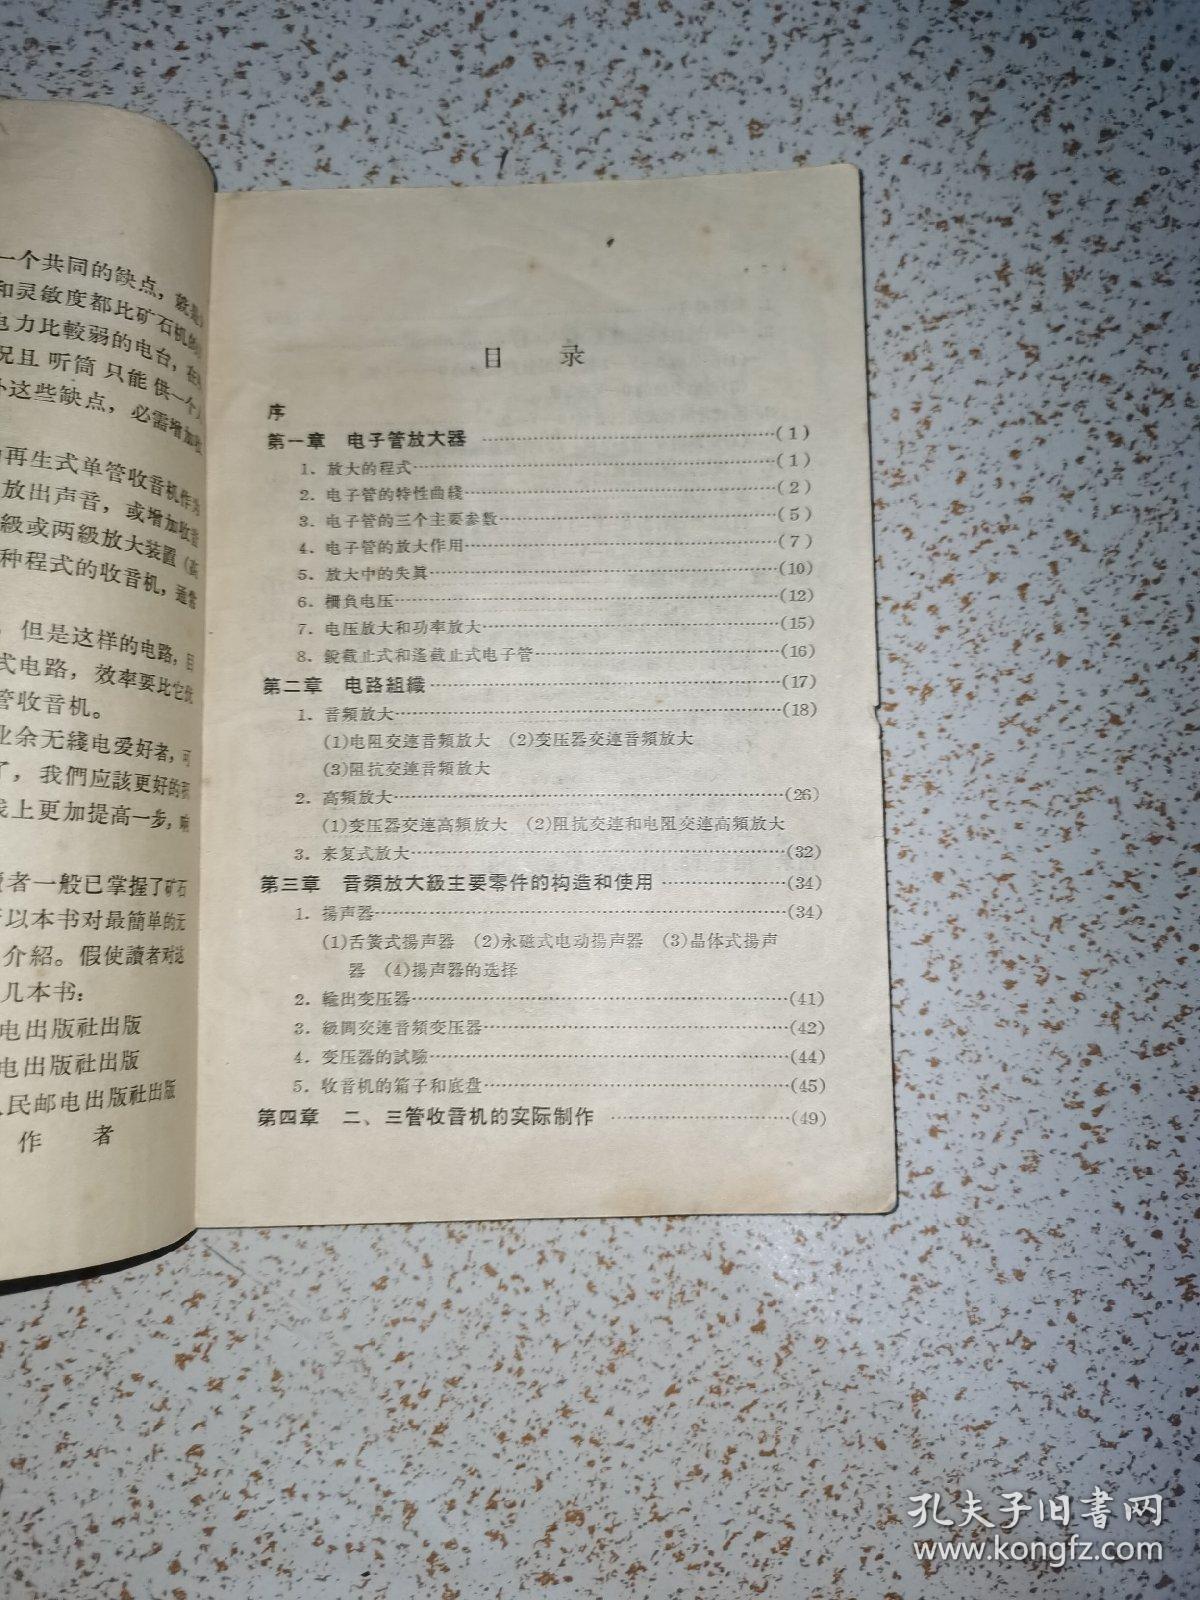 一个共同的缺点，就是
和灵敏度都比矿石机
电力比較弱的电台，在
况且 听筒 只能 供一个
这些缺点，必需增加
再生式单管收音机作
放出声音，或增加收
級或两級放大装置（高
种程式的收音机，通常
，但是这样的电路，目
式电路，效率要比它优
管收音机。
业余无綫电爱好者，可
了，我們应該更好的
上更加提高一步，
讀者一般已掌握了矿石
以本书对最簡单的无
介紹。假使讀者对这
几本书：
电出版社出版
电出版社出版
人民邮电出版社出版
作 者
目 录
序
第一章 电子管放大器 ……(1)
1. 放大的程式……(1)
2. 电子管的特性曲綫……(2)
3. 电子管的三个主要参数……(5)
4. 电子管的放大作用……(7)
5. 放大中的失眞……(10)
6. 栅負电压……(12)
7. 电压放大和功率放大……(15)
8. 銳截止式和遙截止式电子管……(16)
第二章 电路組織……(17)
1. 音頻放大……(18)
(1)电阻交連音頻放大 (2)变压器交連音頻放大
(3)阻抗交連音頻放大
2. 高頻放大……(26)
(1)变压器交連高頻放大 (2)阻抗交連和电阻交連高頻放大
3. 来复式放大……(32)
第三章 音頻放大級主要零件的构造和使用 ……(34)
1. 揚声器……(34)
(1)舌簧式揚声器 (2)永磁式电动揚声器 (3)晶体式揚声
器 (4)揚声器的选择
2. 輸出变压器……(41)
3. 級間交連音頻变压器……(42)
4. 变压器的試驗……(44)
5. 收音机的箱子和底盘……(45)
第四章 二、三管收音机的实际制作 ……(49)
孔夫子旧書网
www.kongfz.com